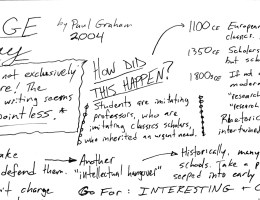 GE
by Paul Graham
2004
ay
not exclusively
re! The
writing seems
pointless.*
HOW DID
THIS HAPPEN?
Students are imitating
professors, who are
imitating classics scholars,
who inherited an urgent need.
1100 CE Europea
classics.
1350 CE Scholars
but sch
1800s CE
moder
"research
"research
Rhetoric
intertwine
ake
defend them.
n't change
Another
"intellectual hangover"
Historically, many
schools. Take a p
seeped into early
GO FOR: INTERESTING + C